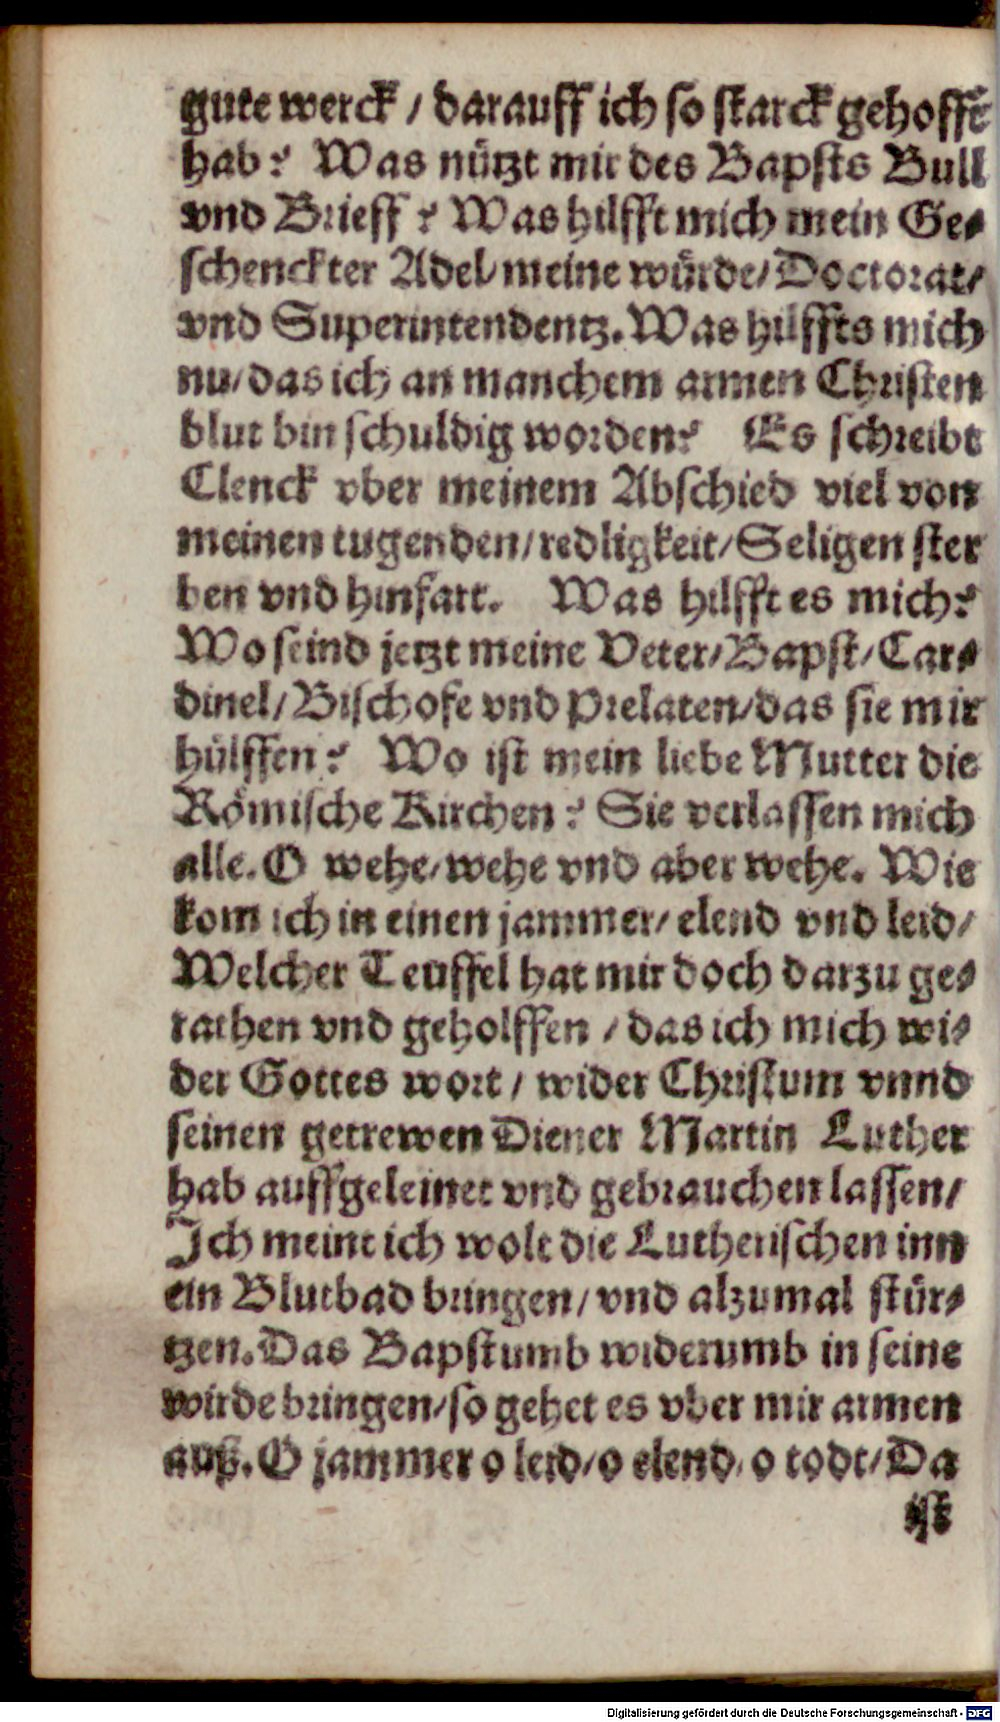 gute werck / darauff ich so starck gehofft
hab? Was nützt mir des Bapsts Bull
vnd Brieff? Was hilfft mich mein Ge-
schenckter Adel/ meine würde/ Doctorat/
vnd Superintendentz. Was hilffts mich
nu/ das ich an manchem armen Christen
blut bin schuldig worden? Es schreibt
Clenck vber meinem Abschied viel von
meinen tugenden/ redligkeit/ Seligen ster
ben vnd hinfart. Was hilfft es mich?
Wo seind jetzt meine Veter/ Bapst/ Car-
dinel/ Bischofe vnd Prelaten/ das sie mir
hülffen? Wo ist mein liebe Mutter die
Römische Kirchen? Sie verlassen mich
alle. O wehe/ wehe vnd aber wehe. Wie
kom ich in einen jammer/ elend vnd leid/
Welcher Teuffel hat mir doch darzu ge-
rathen vnd geholffen / das ich mich wi-
der Gottes wort / wider Christum vnnd
seinen getrewen Diener Martin Luther
hab auffgeleinet vnd gebrauchen lassen/
Ich meint ich wolt die Lutherischen inn
ein Blutbad bringen/ vnd alzumal stür-
tzen. Das Bapstumb widerumb in seine
wirde bringen/ so gehet es vber mir armen
auß. O jammer o leid/ o elend/ o todt/ Da
ist
Digitalisierung gefördert durch die Deutsche Forschungsgemeinschaft - DFG